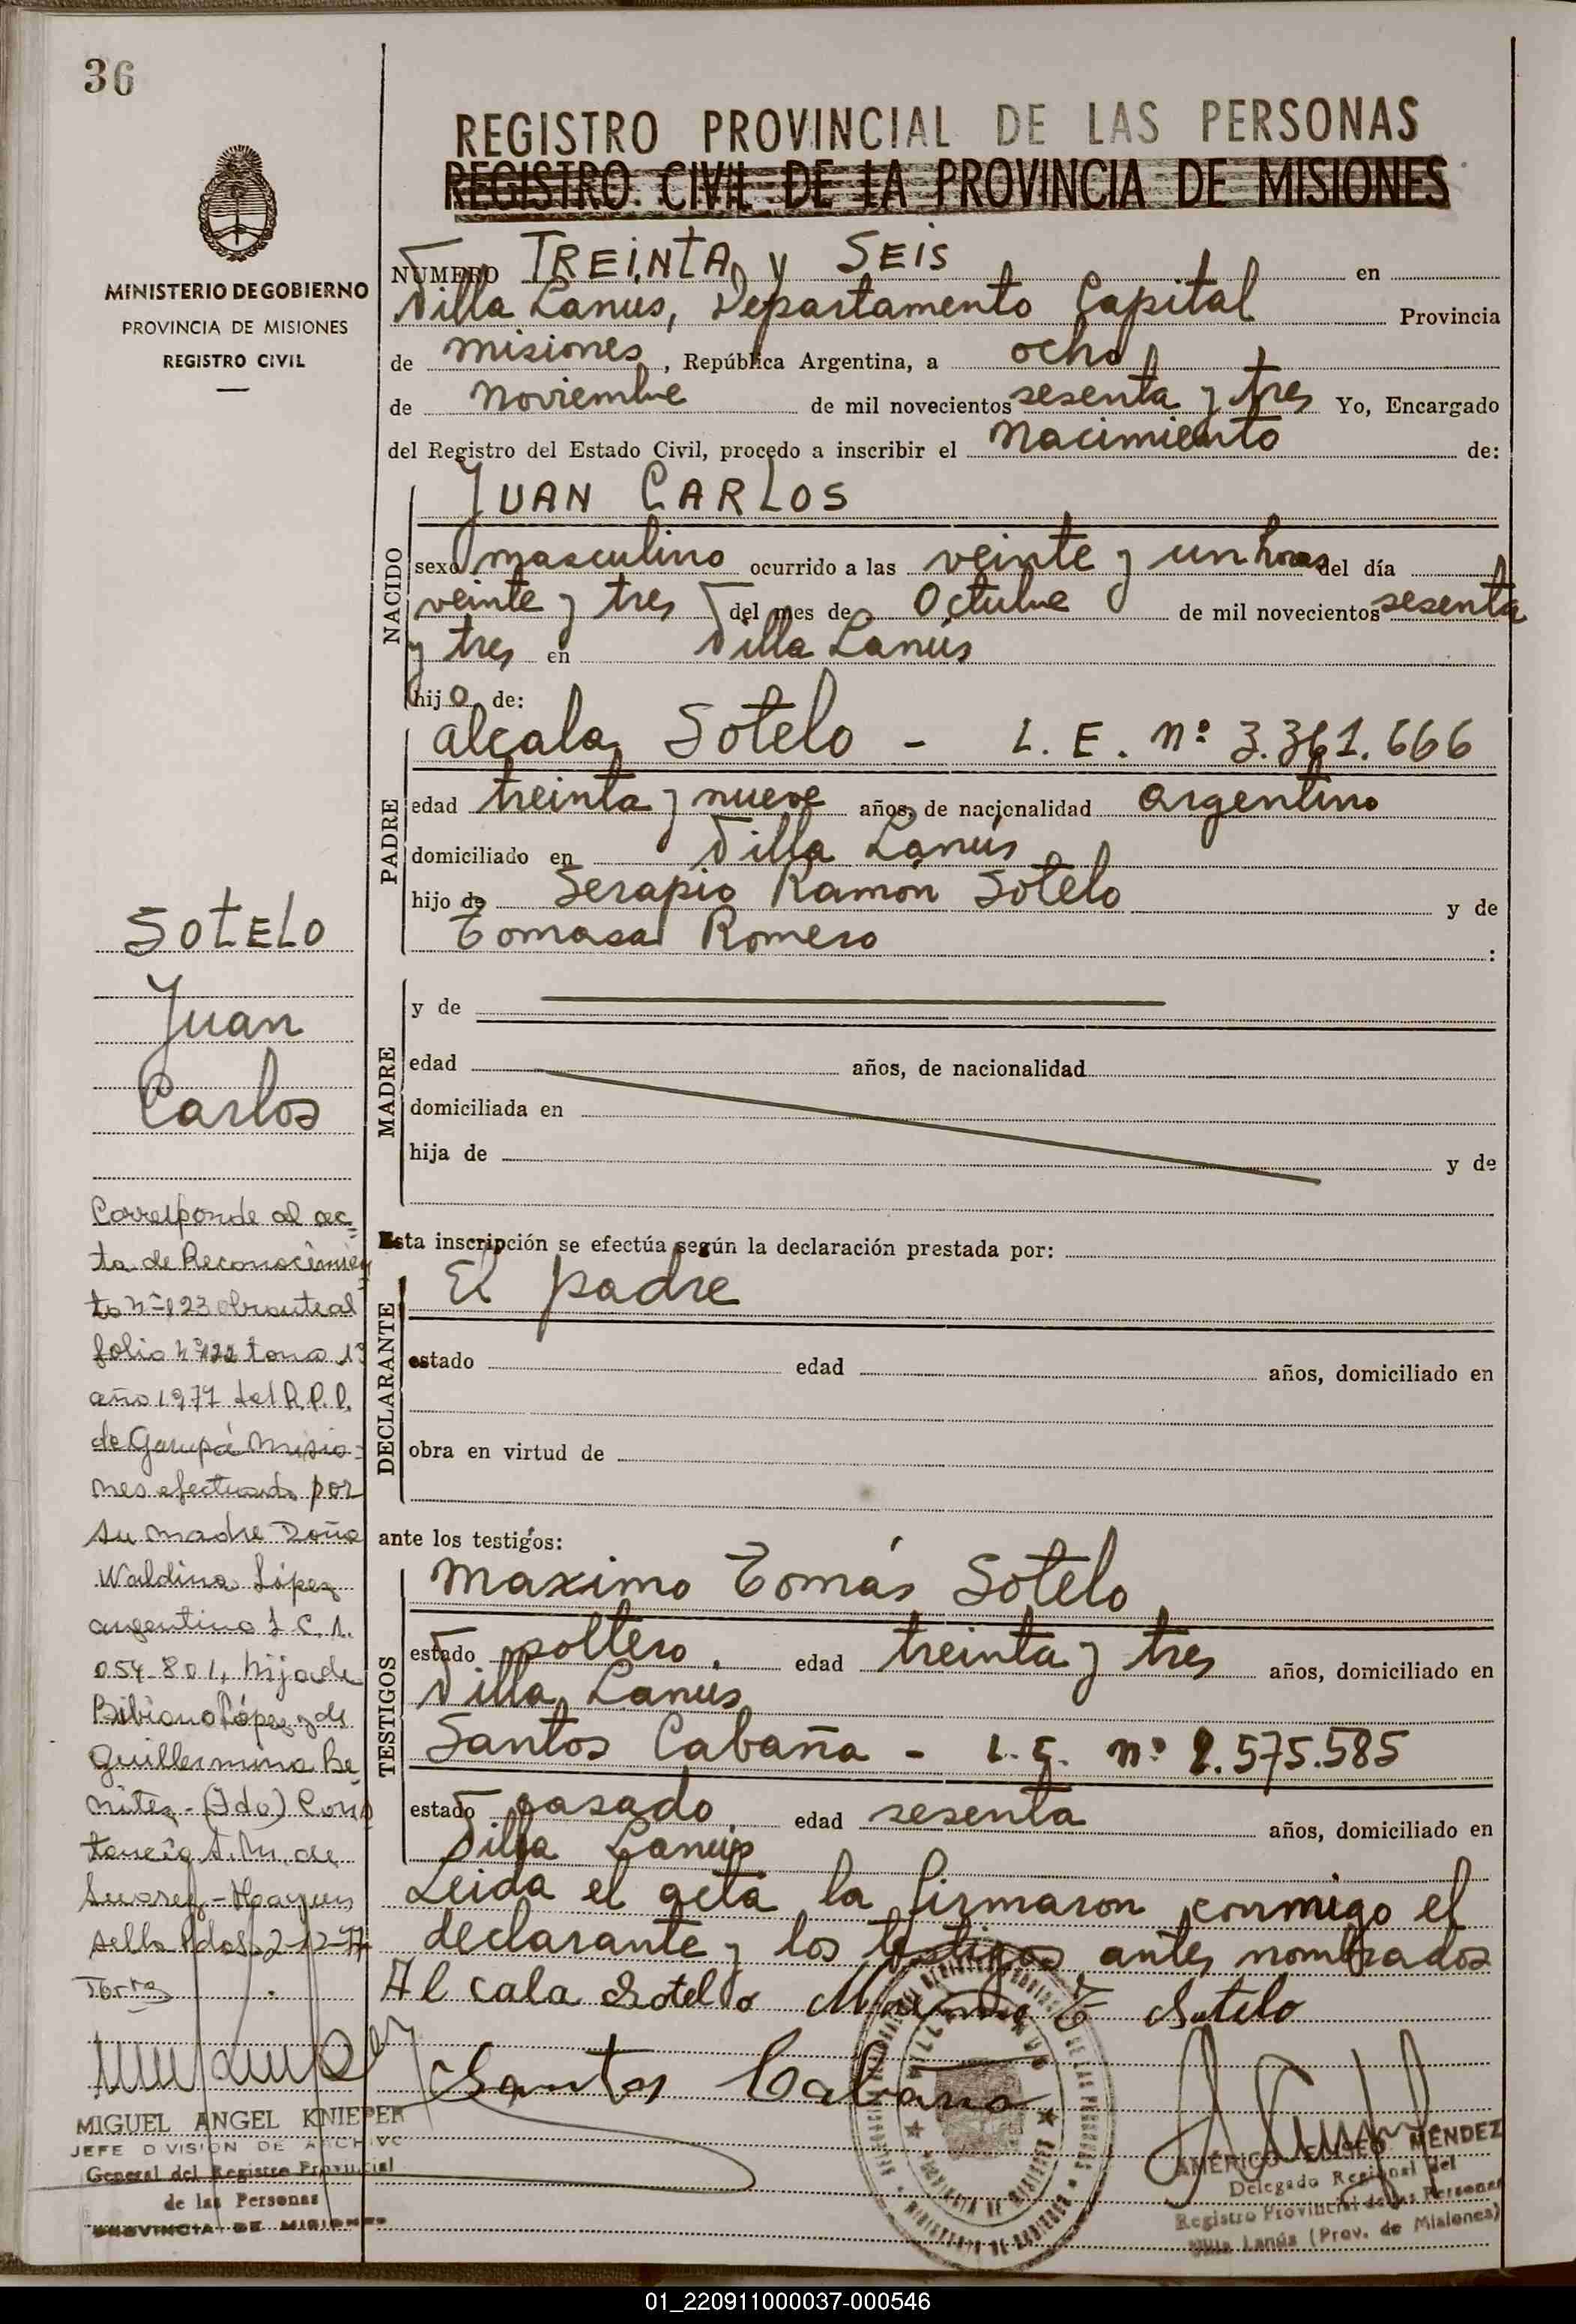 36
REGISTRO PROVINCIAL DE LAS PERSONAS
REGISTRO CIVIL DE LA PROVINCIA DE MISIONES
MINISTERIO DE GOBIERNO
PROVINCIA DE MISIONES
REGISTRO CIVIL
NUMERO TREINTA y SEIS en
Villa Lanus, Departamento Capital Provincia
de misiones, República Argentina, a ocho
de noviembre de mil novecientos sesenta y tres Yo, Encargado
del Registro del Estado Civil, procedo a inscribir el nacimiento de:
NACIDO
JUAN CARLOS
sexo masculino ocurrido a las veinte y un horas del día
veinte y tres del mes de Octubre de mil novecientos sesenta
y tres en Villa Lanús
hijo de:
PADRE
alcala Sotelo - L. E. nº 3.361.666
edad treinta y nueve años, de nacionalidad argentino
domiciliado en Villa Lanús
hijo de Serapio Ramón Sotelo y de
Tomasa Romero :
MADRE
y de
edad años, de nacionalidad
domiciliada en
hija de y de
Esta inscripción se efectúa según la declaración prestada por:
DECLARANTE
El padre
estado edad años, domiciliado en
obra en virtud de
ante los testigos:
TESTIGOS
maximo Tomás Sotelo
estado soltero. edad treinta y tres años, domiciliado en
Villa Lanus
Santos Cabaña - L.E. nº 2.575.585
estado casado edad sesenta años, domiciliado en
Villa Lanús
Leida el acta la firmaron conmigo el
declarante y los testigos antes nombrados
Alcala Sotelo Maximo T Sotelo
Santos Cabaña
SOTELO
Juan
Carlos
Corresponde al ac-
ta de Reconocimien
to nº 123 obrante al
folio nº 122 tomo 1º
año 1977 del R.P.P.
de Garupá Misio-
nes efectuado por
su madre Doña
Waldina López
argentina L C. 1.
054.801, hija de
Bibiano López y de
Guillermina Be
nitez - (Fdo) Cons
tancia A. M. de
Suarez - Hay un
sello Pdas. 2-12-77
Torrez
MIGUEL ANGEL KNIEPER
JEFE DIVISION DE ARCHIVO
General del Registro Provincial
de las Personas
PROVINCIA DE MISIONES
AMÉRICO ELISEO MÉNDEZ
Delegado Regional del
Registro Provincial de las Personas
Villa Lanús (Prov. de Misiones)
01_220911000037-000546